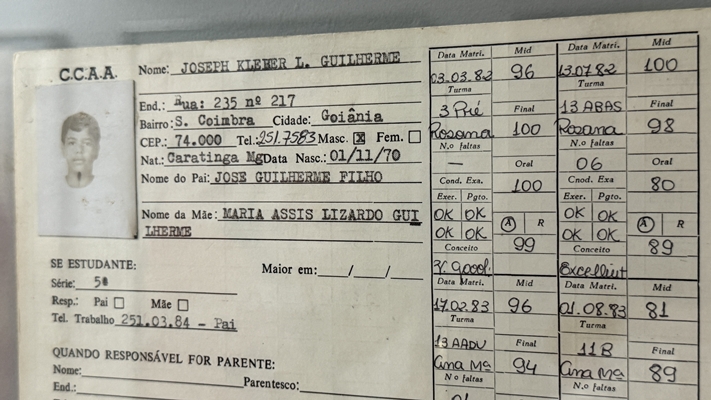 C.C.A.A.
Nome: JOSEPH KLEBER L. GUILHERME
End.: Rua: 235 nº 217
Bairro: S. Coimbra Cidade: Goiânia
CEP.: 74.000 Tel.: 251.7583 Masc. X Fem.
Nat.: Caratinga Mg Data Nasc.: 01/11/70
Nome do Pai: JOSE GUILHERME FILHO
Nome da Mãe: MARIA ASSIS LIZARDO GUI
LHERME
SE ESTUDANTE: Maior em: __/__/__
Série: 5ª
Resp.: Pai Mãe
Tel. Trabalho 251.03.84 - Pai
QUANDO RESPONSÁVEL FOR PARENTE:
Nome:
End.: Parentesco:
Data Matri. Mid
03.03.82 96
Turma
3 Pré Final
Rosana 100
N.o faltas
— Oral
Cond. Exa. 100
Exer. Pgto.
OK OK A R
OK OK
Conceito 99
Data Matri. Mid
17.02.83 96
Turma
13 AADU Final
Ana Mª 94
N o faltas
Data Matri. Mid
13.07.82 100
Turma
13 ABAS Final
Rosana 98
N.o faltas
06 Oral
Cnod. Exa. 80
Exer. Pgto.
OK OK A R
OK OK
Conceito 89
Excellent
Data Matri. Mid
01.08.83 81
Turma
11B Final
Ana Mª 89
N.o faltas